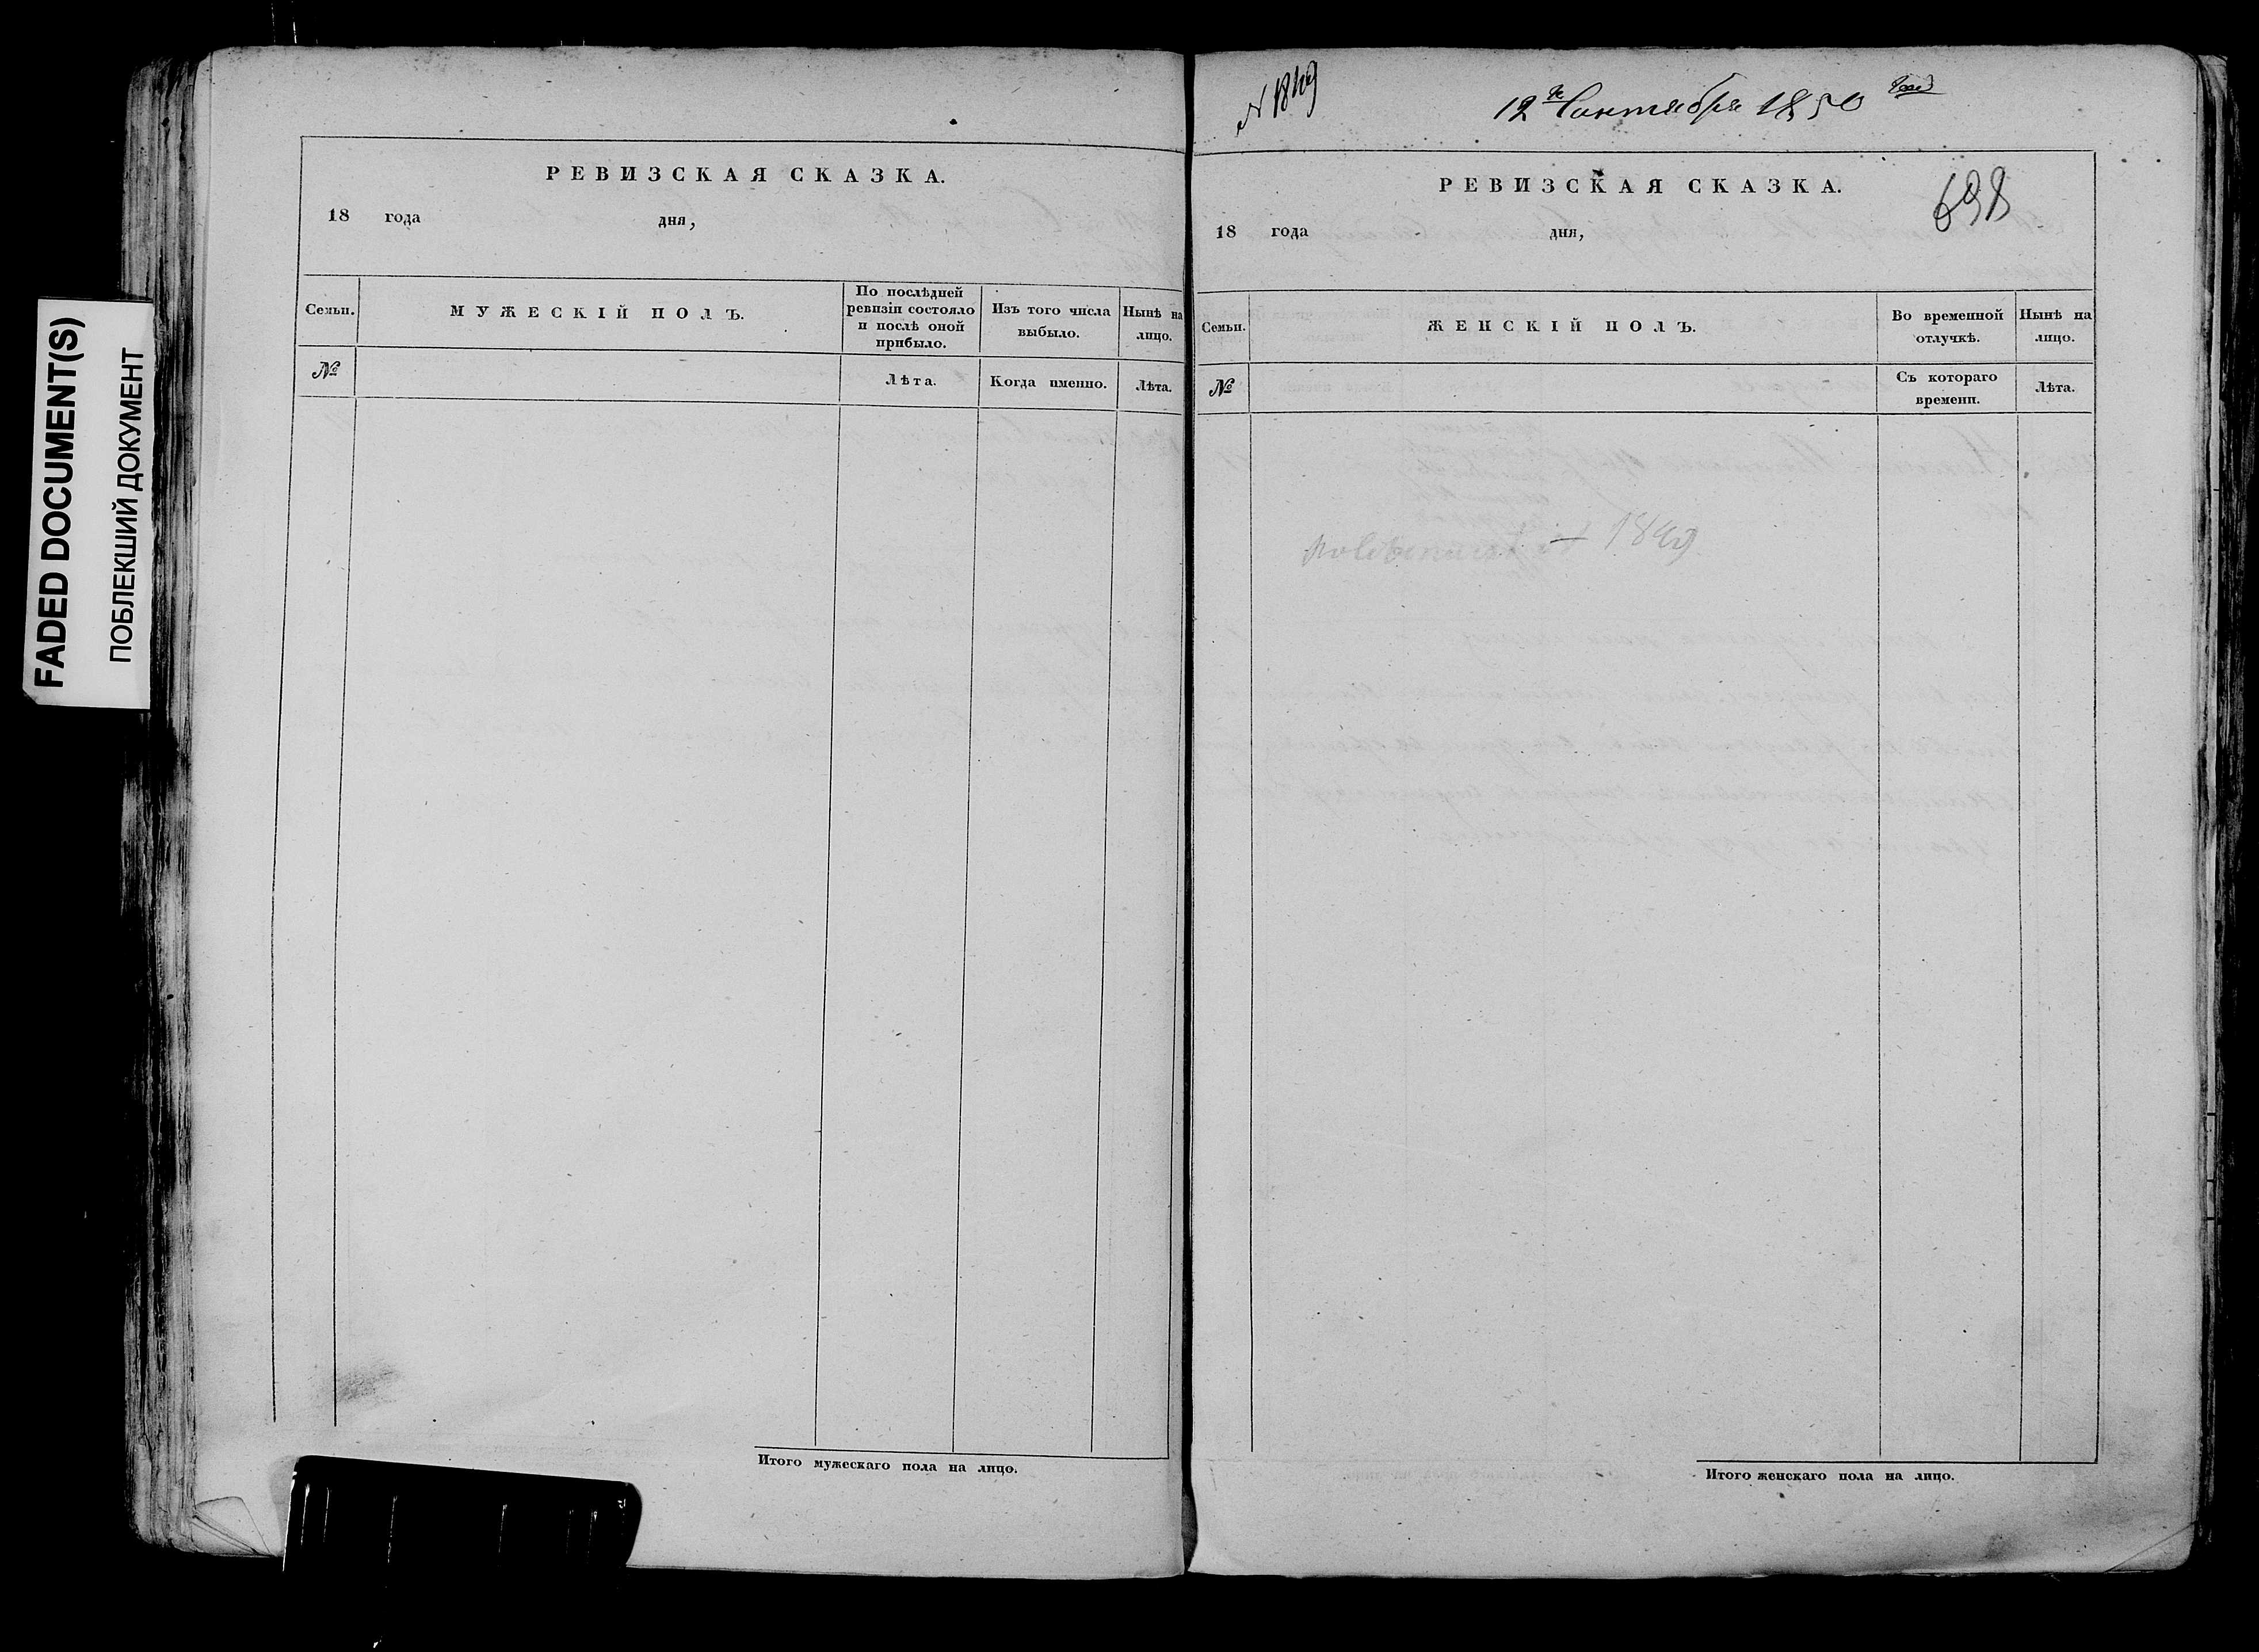 FADED DOCUMENT(S)
ПОБЛЕКШИЙ ДОКУМЕНТ
РЕВИЗСКАЯ СКАЗКА.
18 года дня,
Семьи.
МУЖЕСКІЙ ПОЛЪ.
По послѣдней
ревизіи состояло
и послѣ оной
прибыло.
Изъ того числа
выбыло.
Нынѣ на
лицо.
№
Лѣта.
Когда именно.
Лѣта.
Итого мужескаго пола на лицо.
N 1849
12го Сентября 1850 года
РЕВИЗСКАЯ СКАЗКА.
698
18 года дня,
Семьи.
ЖЕНСКІЙ ПОЛЪ.
Во временной
отлучкѣ.
Нынѣ на
лицо.
№
Съ котораго
времени.
Лѣта.
1849
Итого женскаго пола на лицо.